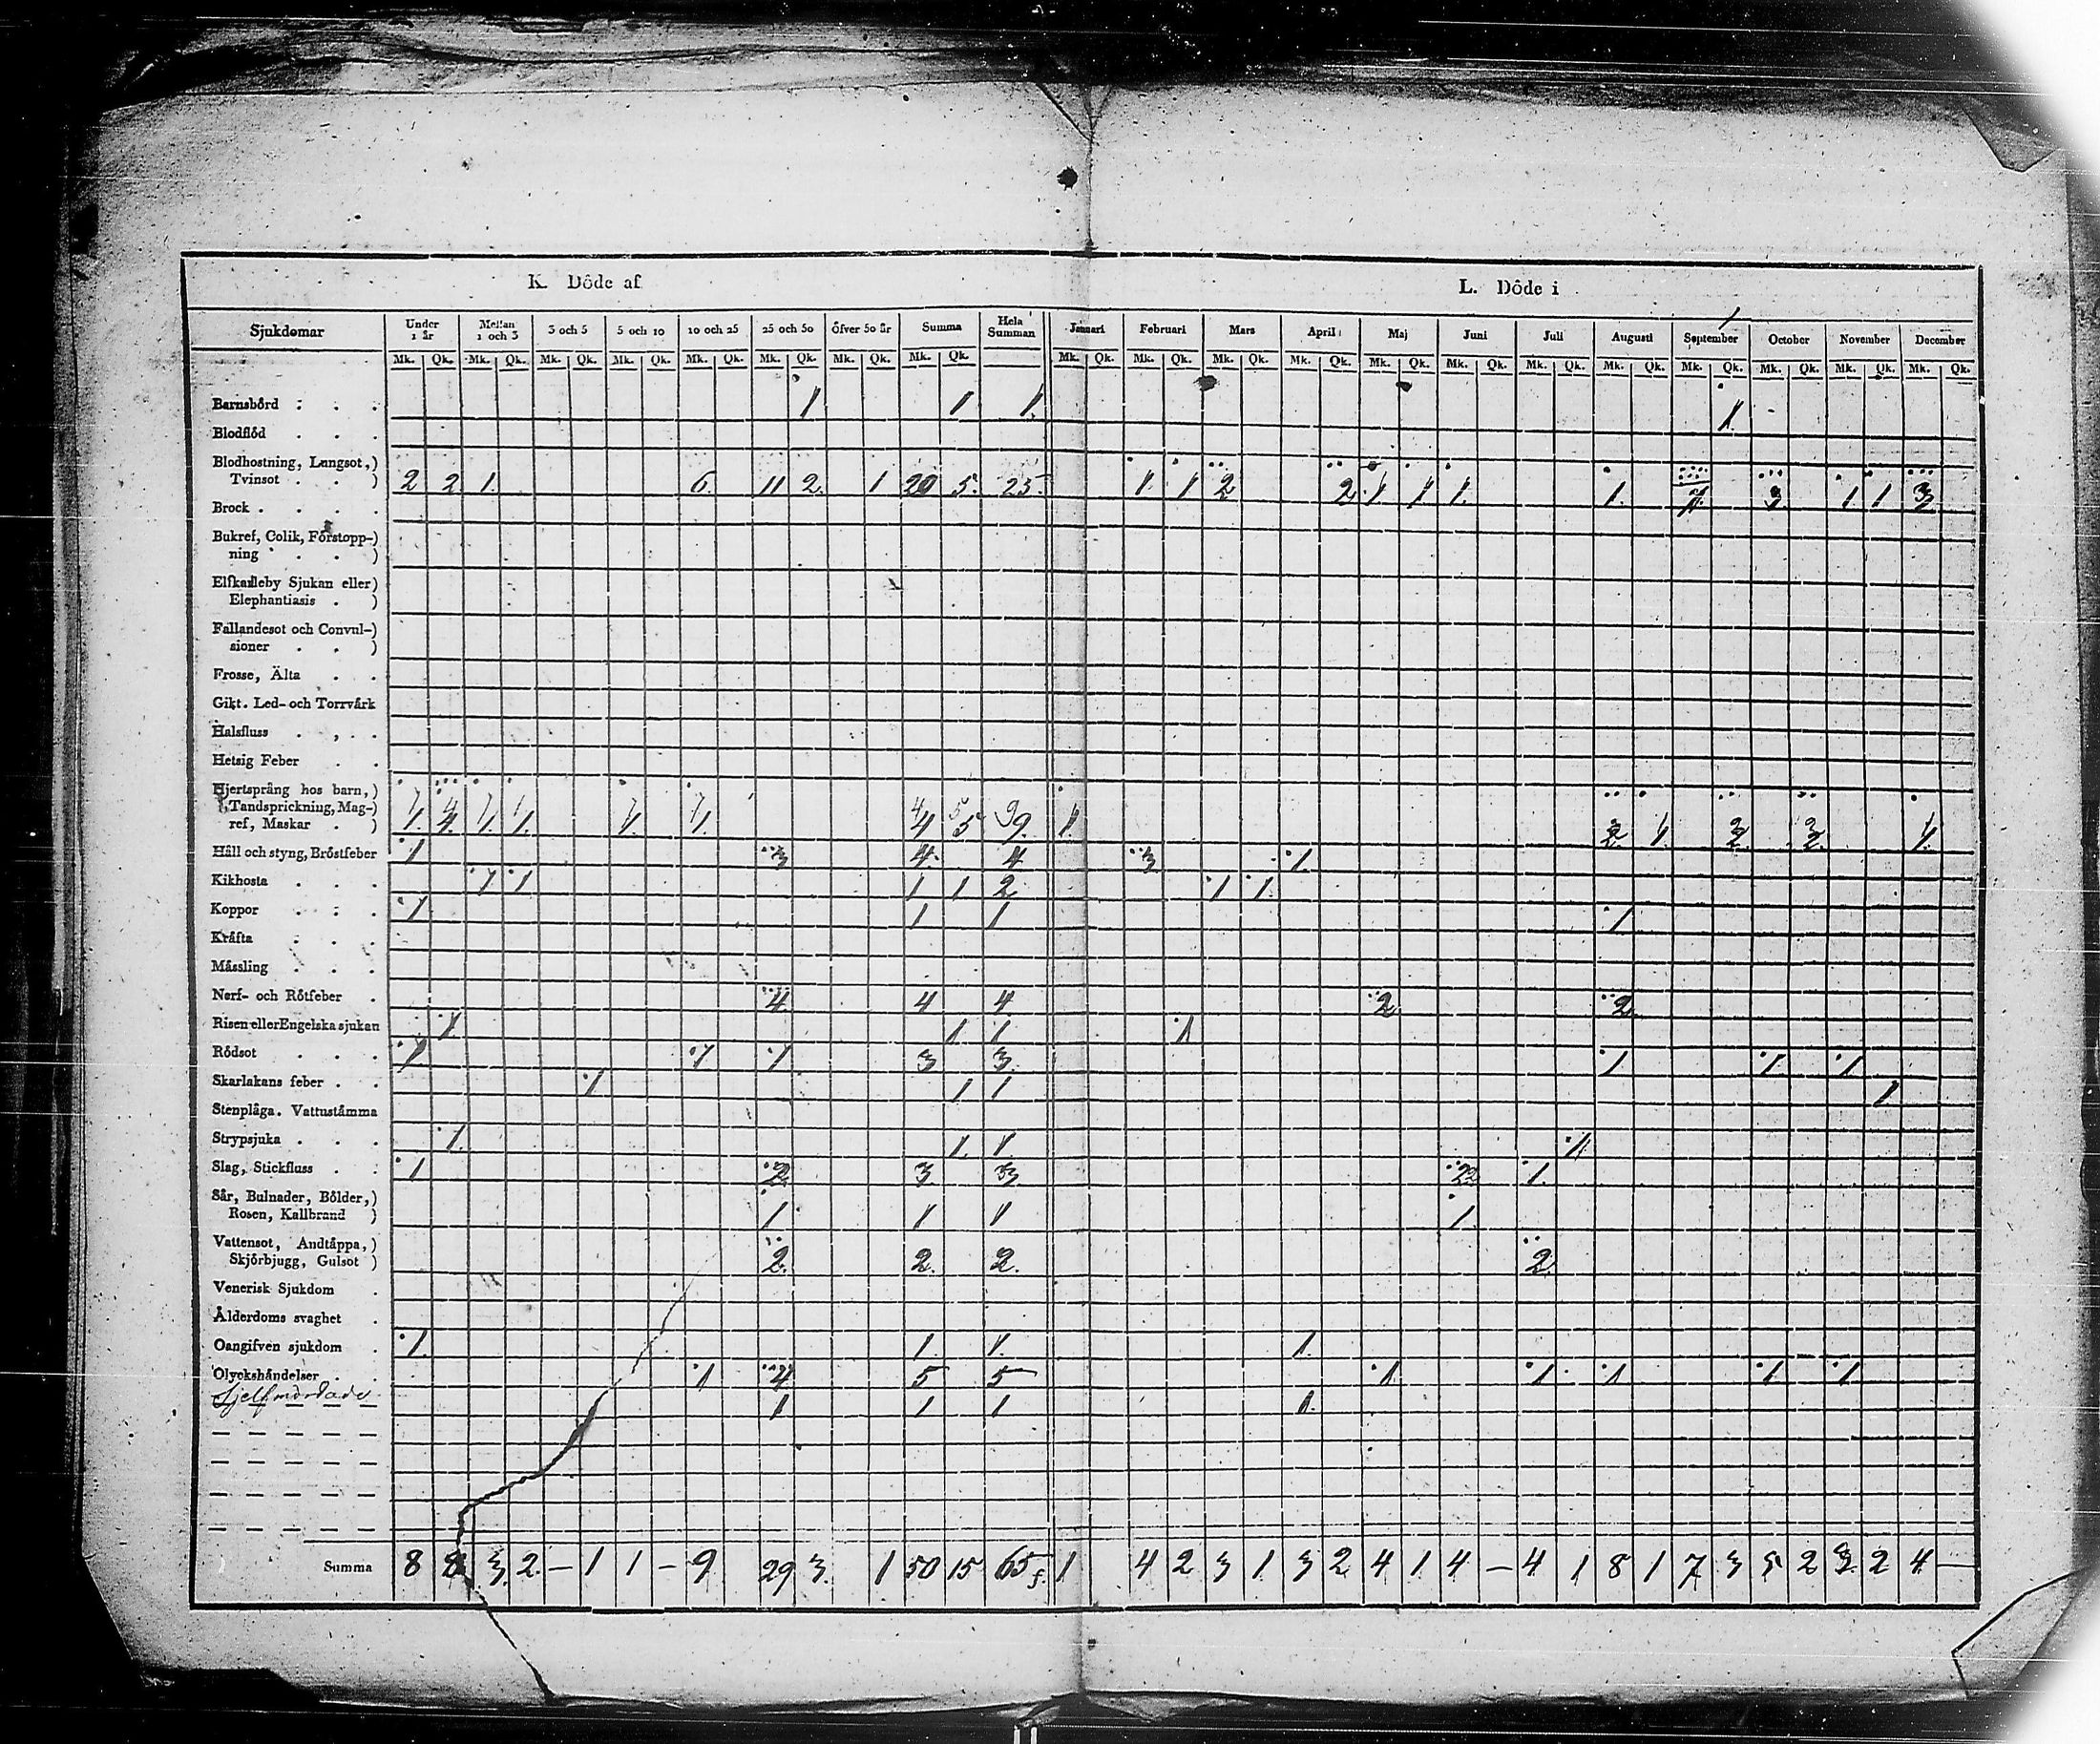 K. Döde af L. Döde i
Sjukdomar Under 1 år Mellan 1 och 3 3 och 5 5 och 10 10 och 25 25 och 50 öfver 50 år Summa Hela Summan Januari Februari Mars April Maj Juni Juli Augusti September October November December
Mk. Qk. Mk. Qk. Mk. Qk. Mk. Qk. Mk. Qk. Mk. Qk. Mk. Qk. Mk. Qk. Mk. Qk. Mk. Qk. Mk. Qk. Mk. Qk. Mk. Qk. Mk. Qk. Mk. Qk. Mk. Qk. Mk. Qk. Mk. Qk. Mk. Qk. Mk. Qk.
Barnsbörd . . . 1 1 1. 1.
Blodflöd . . .
Blodhostning, Lungsot,)
Tvinsot . . ) 2 2 1. 6. 11 2. 1 20 5. 25. 1. 1 2 2. 1 1 1. 1. 7. 3. 1 1 3.
Brock . . . .
Bukref, Colik, Förstopp-)
ning . . )
Elfkarleby Sjukan eller)
Elephantiasis . )
Fallandesot och Convul-)
sioner . . )
Frosse, Älta . .
Gikt. Led- och Torrvärk
Halsfluss . , . .
Hetsig Feber . .
Hjertsprång hos barn,)
Tandsprickning, Mag-)
ref, Maskar . ) 1. 4. 1. 1. 1. 1. 4 5 9. 1. 2. 1. 2. 2. 1.
Håll och styng, Bröstfeber 1 3 4. 4 3 1.
Kikhosta . . . 1 1 1 1 2 1 1.
Koppor . . . 1. 1 1 1
Kräfta . . .
Mässling . . .
Nerf- och Rötfeber . 4. 4 4. 2. 2.
Risen eller Engelska sjukan 1 1 1 1
Rödsot . . . 1 1 1 3 3. 1 1. 1
Skarlakans feber . . 1 1 1 1
Stenplåga. Vattustämma
Strypsjuka . . . 1. 1. 1. 1.
Slag, Stickfluss . . 1 2. 3 3 2 1.
Sår, Bulnader, Bölder,)
Rosen, Kallbrand ) 1 1 1 1.
Vattensot, Andtäppa,)
Skjörbjugg, Gulsot ) 2. 2. 2. 2.
Venerisk Sjukdom .
Ålderdoms svaghet .
Oangifven sjukdom . 1. 1. 1. 1.
Olyckshändelser . . 1 4 5 5 1 1 1 1 1
Sjelfmördade 1 1 1 1.
Summa 8 8 3. 2. — 1 1 — 9 29 3. 1 50 15 65 1 4 2 3 1 3 2 4 1 4 — 4 1 8 1 7 3 5 2 3 2 4 —